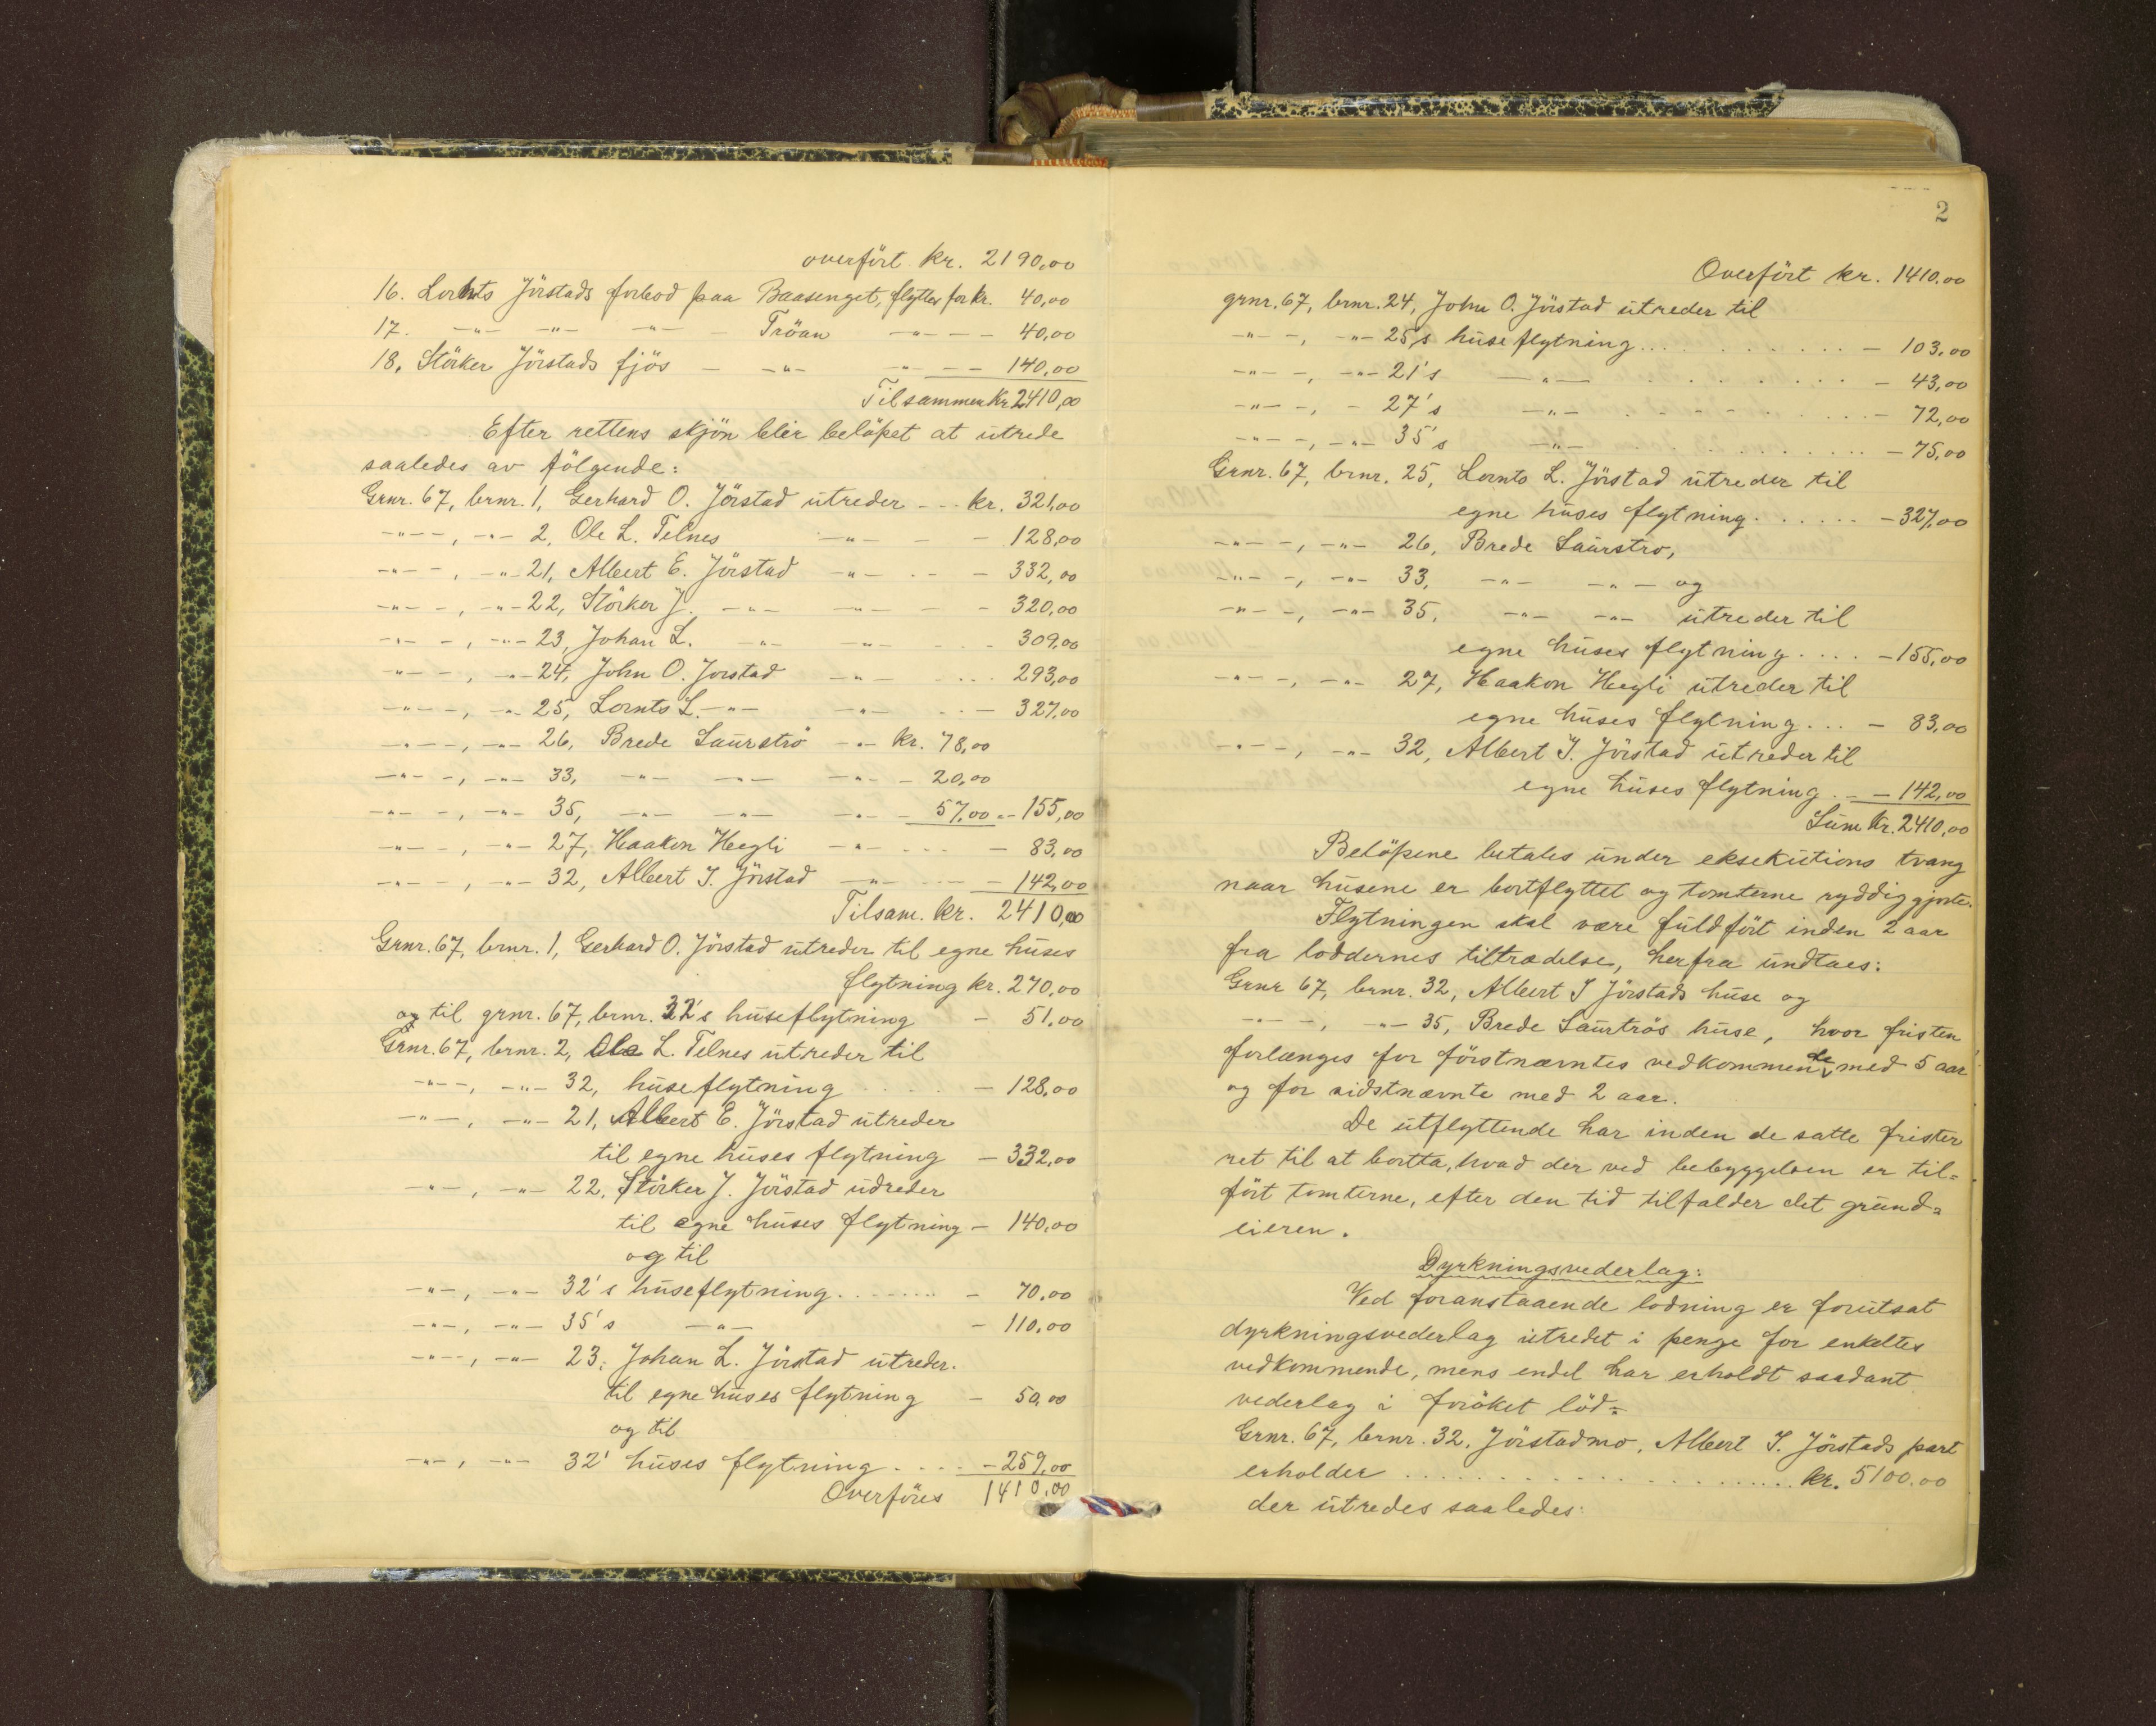 overført kr. 2190,00
16. Lornts Jörstads forbod paa Baasenget, flyttes for kr. 40,00
17. -"- -"- -"- - Tröan -"- - - 40,00
18, Störker Jörstads fjös - -"- -"- - - 140,00
Tilsammen kr 2410,00
Efter rettens skjön blir belöpet at utrede
saaledes av fölgende:
Grnr. 67, brnr. 1, Gerhard O. Jörstad utreder --- kr. 321,00
-"- -, -"- 2, Ole L. Telnes -"- - - 128,00
-"- -, -"- 21, Albert E. Jörstad -"- - - - 332,00
-"- -, -"- 22, Störker J. -"- -"- - - 320,00
-"- -, -"- 23, Johan L. -"- -"- - - - 309,00
-"- -, -"- 24, John O. Jorstad -"- . . . 293,00
-"- -, -"- 25, Lornts L. -"- -"- . . - 327,00
-"- -, -"- 26, Brede Saurströ -"- kr. 78,00
-"- -, -"- 33, -"- -"- -"- - 20,00
-"- -, -"- 35, -"- -"- -"- - 57,00 -- 155,00
-"- -, -"- 27, Haakon Hegli -"- - - - - 83,00
-"- -, -"- 32, Albert I. Jörstad -"- - - - 142,00
Tilsam. kr. 2410,00
Grnr. 67, brnr. 1, Gerhard O. Jörstad utreder til egne huses
flytning kr. 270,00
og til grnr. 67, brnr. 32's huseflytning - 51,00
Grnr. 67, brnr. 2, Ole L. Telnes utreder til
-"- -, -"- 32, huseflytning . . . . - 128,00
-"- -, -"- 21, Albert E. Jörstad utreder
til egne huses flytning - 332,00
-"- -, -"- 22, Störker J. Jörstad udreder
til egne huses flytning - 140,00
og til
-"-, -"- 32's huseflytning . . . . . . . - 70,00
-"-, -"- 35's -"- - 110,00
-"- -, -"- 23, Johan L. Jörstad utreder.
til egne huses flytning - 50,00
og til
-"-, -"- 32' huses flytning . . . . - 259,00
Overföres 1410,00
2
Overfört kr. 1410,00
grnr. 67, brnr. 24, John O. Jörstad utreder til
-"- -, -"- 25,s huseflytning . . . . . . . . . . - 103,00
-"- -, -"- 21's -"- . . . . . . . . - 43,00
-"- -, - 27's -"- . . . . . . . . - 72,00
-"- -, -"- 35's -"- . . . . . . . . - 75,00
Grnr. 67, brnr. 25, Lornts L. Jörstad utreder til
egne huses flytning . . . . . . - 327,00
-"- -, -"- 26, Brede Saurstro,
-"- -, -"- 33, -"- -"- og
-"- -, -"- 35, -"- -"- utreder til
egne huses flytning . . . . - 155,00
-"- -, -"- 27, Haakon Hegli utreder til
egne huses flytning . . . - 83,00
-"- -, -"- 32, Albert I. Jörstad utreder til
egne huses flytning . - - 142,00
Sum kr. 2410,00
Belöpene betales under eksekutions tvang
naar husene er bortflyttet og tomterne ryddiggjorte.
Flytningen skal være fuldfört inden 2 aar
fra loddernes tiltrædelse, herfra undtaes:
Grnr 67, brnr. 32, Albert I Jörstads huse og
-"- -, -"- 35, Brede Saurtrös huse, hvor fristen
forlænges for förstnævntes vedkommende med 5 aar
og for sidstnævnte med 2 aar.
De utflyttende har inden de satte frister
ret til at bortta, hvad der ved bebyggelsen er til=
fört tomterne, efter den tid tilfalder det grund=
eieren.
Dyrkningsvederlag:
Ved foranstaaende lodning er forutsat
dyrkningsvederlag utredet i penge for enkeltes
vedkommende, mens endel har erholdt saadant
vederlag i foröket lod=
Grnr. 67, brnr. 32, Jörstadmo, Albert I. Jörstads part
erholder . . . . . . . . . . . . . . . . . kr. 5100,00
der utredes saaledes: